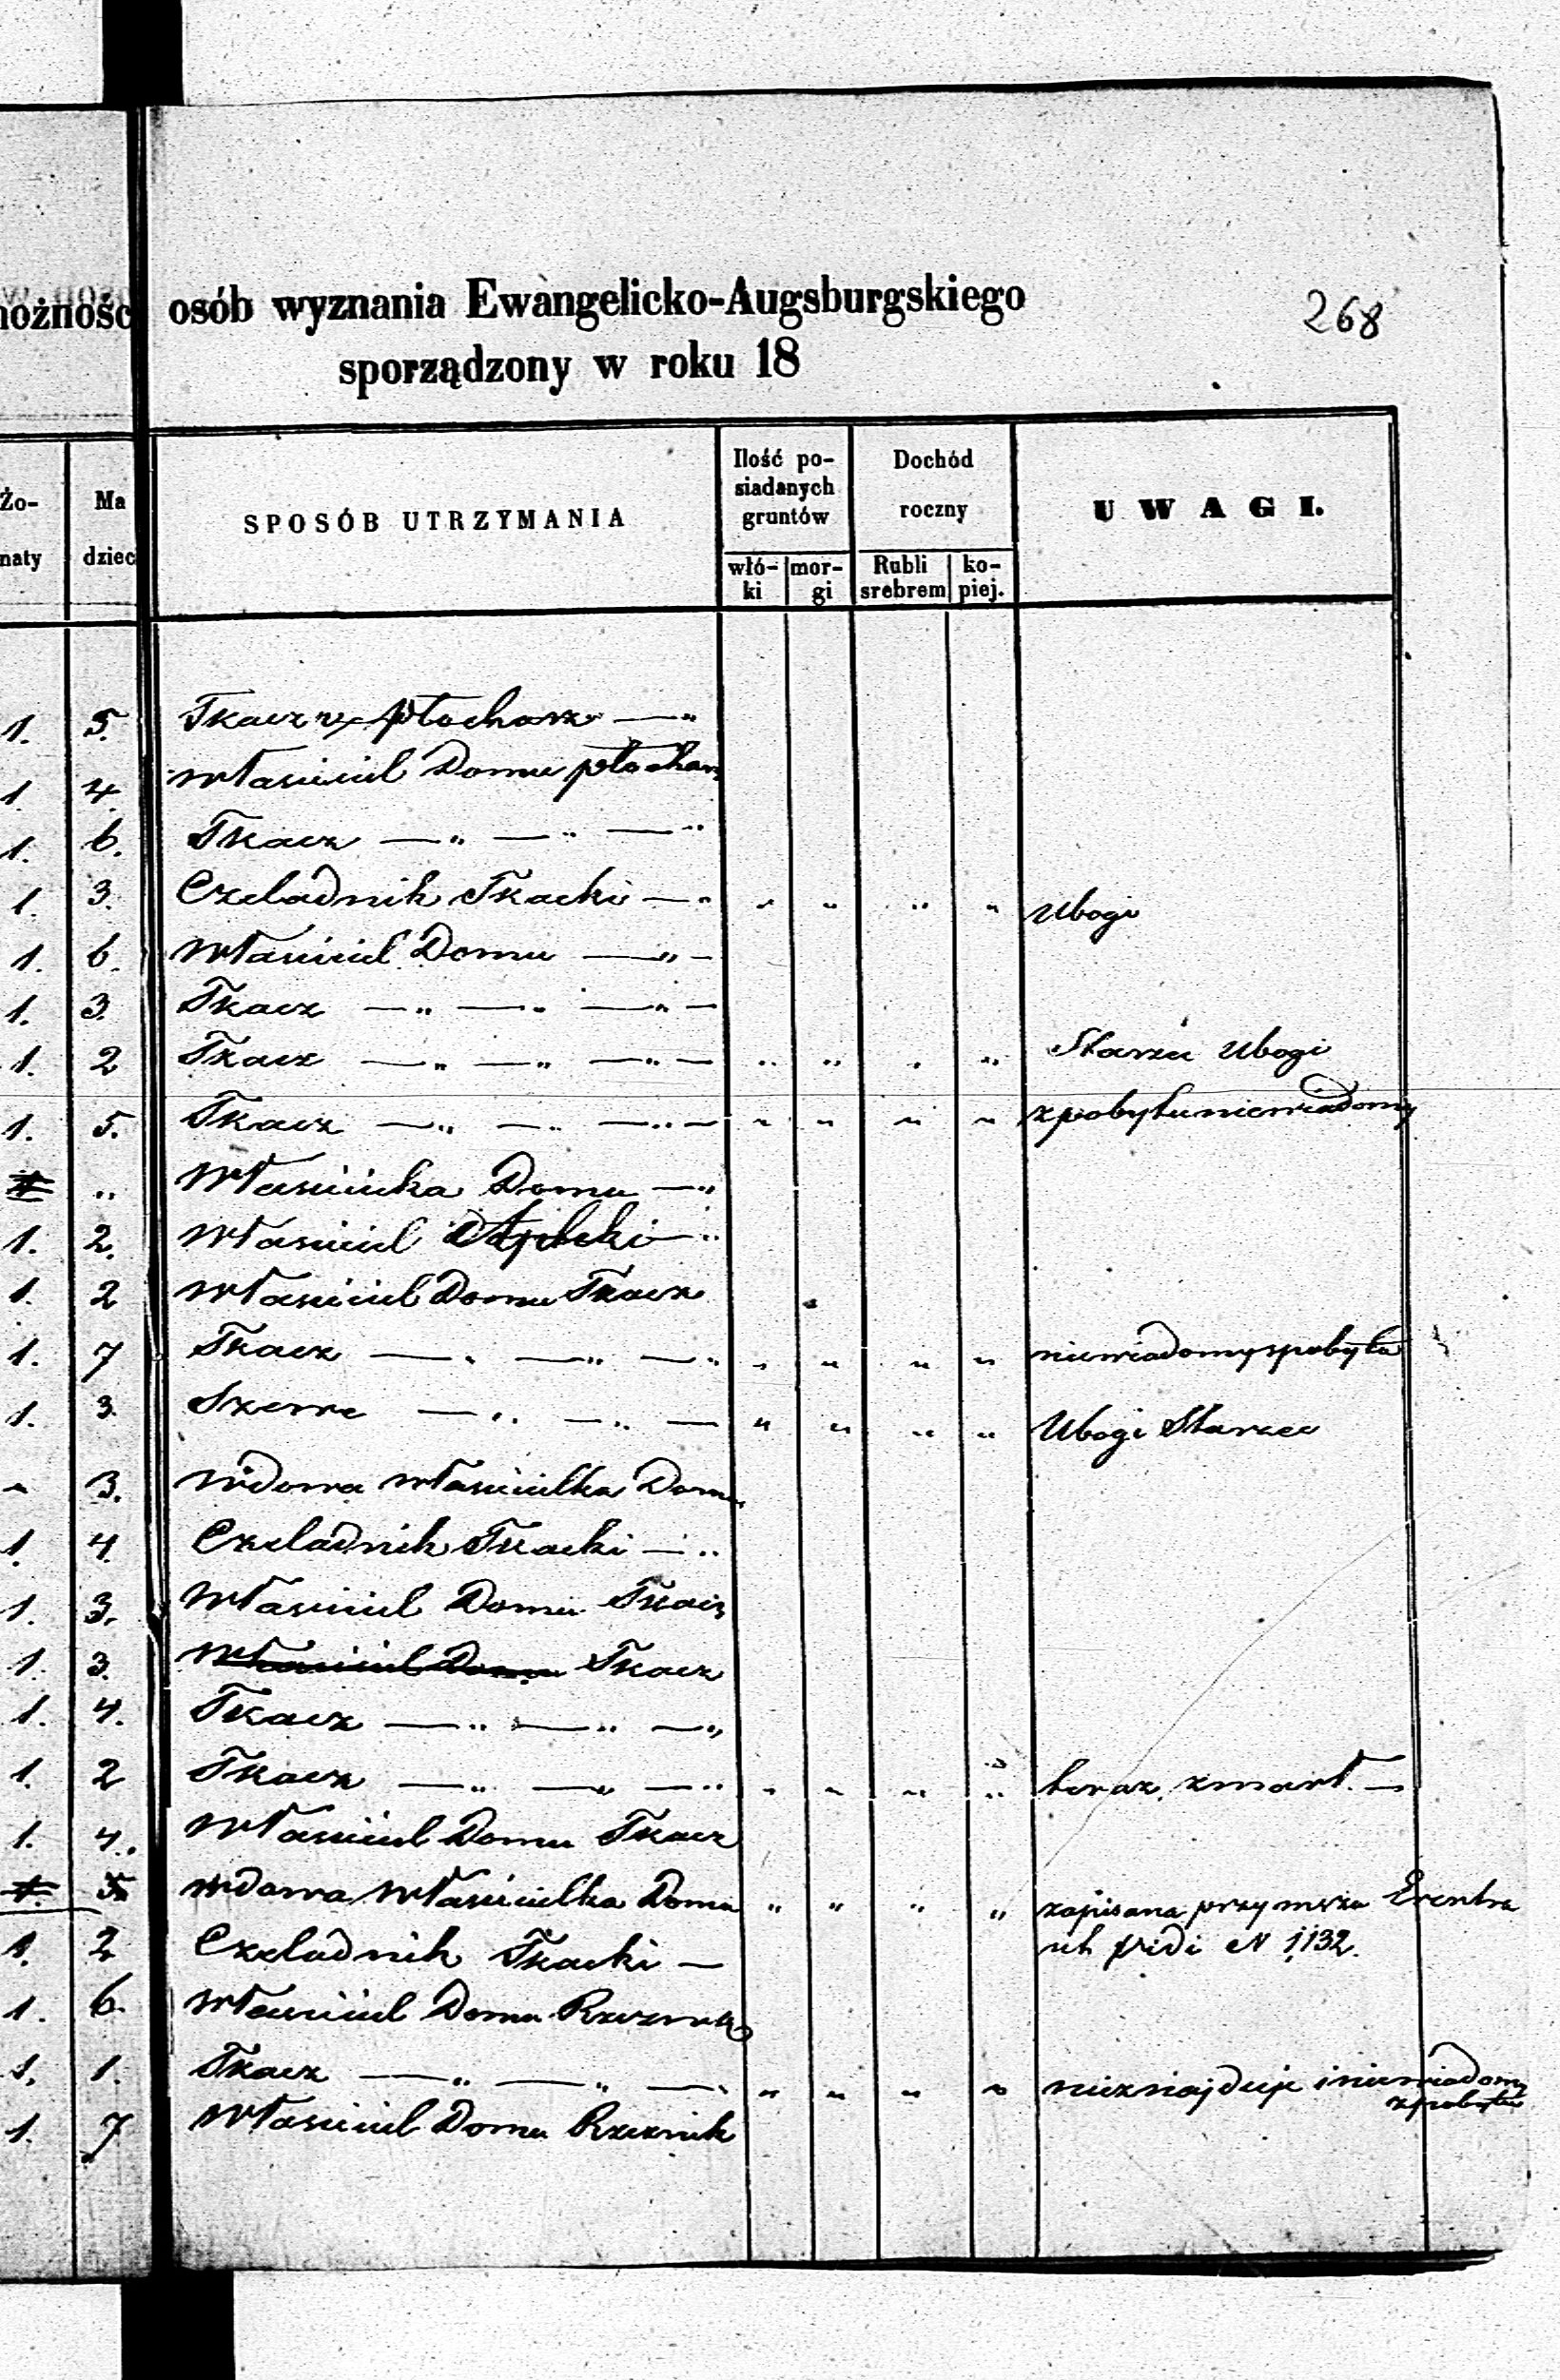 nożność osób wyznania Ewangelicko-Augsburgskiego
268
sporządzony w roku 18
Żo-
naty
Ma
dzieci
SPOSÓB UTRZYMANIA
Ilość po-
siadanych
gruntów
włó-
ki
mor-
gi
Dochód
roczny
Rubli
srebrem
ko-
piej.
UWAGI.
1. 5. Tkacz płocharz — "
1 4. Właściciel Domu płocharz
1. 6. Tkacz — " — " — "
1. 3. Czeladnik Tkacki — " " " " " Ubogi
1. 6. Właściciel Domu — " —
1. 3. Tkacz — " — " — " —
1. 2 Tkacz — " — " — " — " " " " Starzec Ubogi
1. 5. Tkacz — " — " — " — " " " " z pobytu niewiadomy
1 " Właścicielka Domu — "
1. 2. Właściciel Apteki — "
1. 2 Właściciel Domu Tkacz
1. 7 Tkacz — " — " — " " " " " niewiadomy z pobytu
1. 3. — " — " — " " " " Ubogi Starzec
" 3. Wdowa właścicielka Domu
1. 4. Czeladnik Tkacki — "
1. 3. Właściciel Domu Tkacz
1. 3. Właściciel Domu Tkacz
1. 4. Tkacz — " — " — "
1. 2 Tkacz — " — " — " " " " " teraz zmarł. —
1. 4. Właściciel Domu Tkacz
1. 5 wdowa Właścicielka Domu " " " " zapisana przy
vidi N 1132.
1. 2 Czeladnik Tkacki —
1. 6. Właściciel Domu Rzeznik
1. 1. Tkacz — " — " — " " " " " nieznajduje i niewiadomy
z pobytu
1. 7 Właściciel Domu Rzeznik